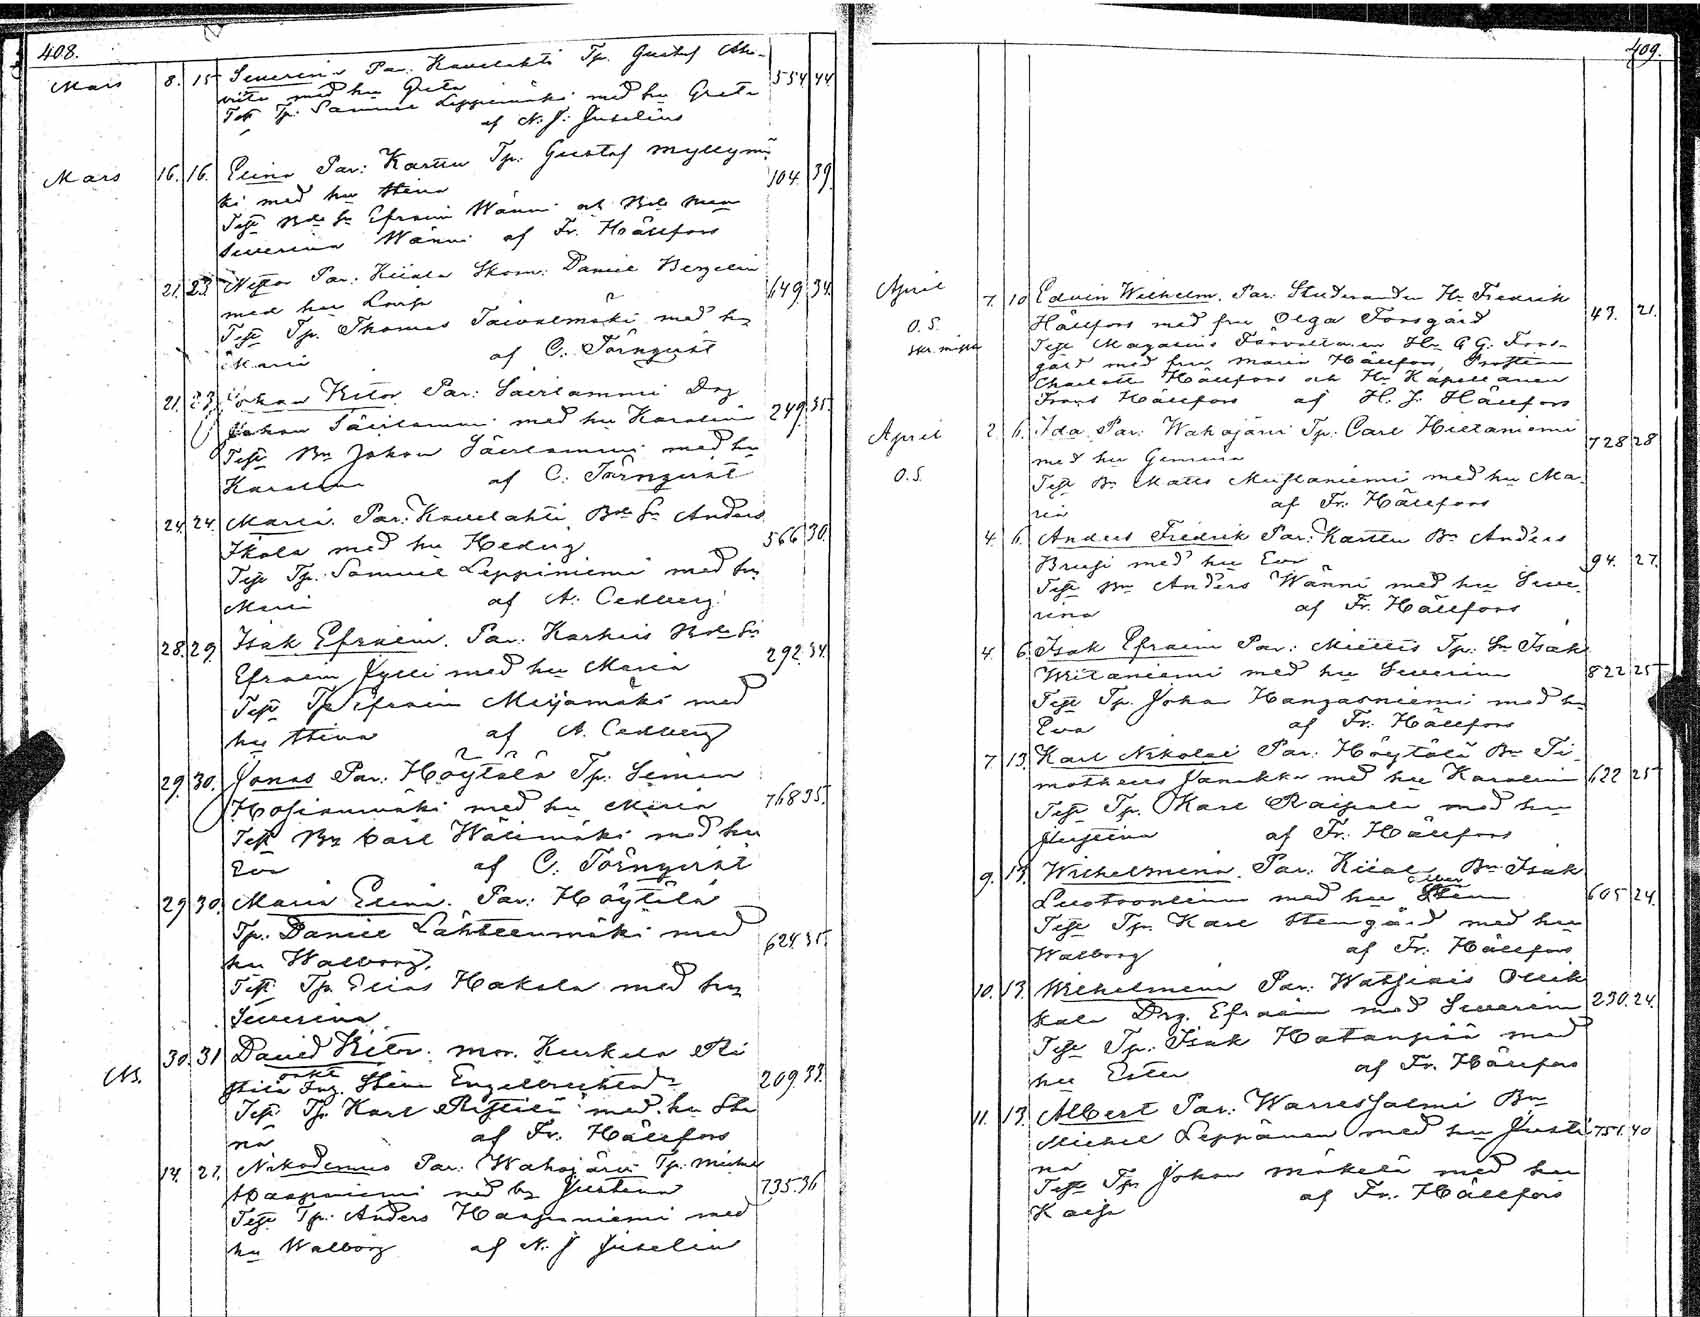 408.
Mars 8. 15 Severina Par: Kauelahti Tp. Gustaf
med hu Greta 554 44
Test Tp: Samuel Leppiniemi med hu Greta
af N. J. Juselius
Mars 16. 16. Elina Par: Karttu Tp: Gustaf Myllymä
ki med hu Stina 104. 39.
Test Bde Sn Efraim Wänni och Bde
Severina Wänni af Fr. Hällfors
21. 23. Nestor Par: Kiiala Skom: Daniel Bergelin
med hu Lovisa 649. 34.
Test Tp. Thomas Taivalmäki med hu
Maria af C. Törnqvist
21. 23. Johan Vitor Par: Säirlammi Drg
Johan Säirlammi med hu Karolina 249. 35.
Test Bn Johan Säirlammi med hu
Karolina af C. Törnqvist
24. 24. Maria. Par: Kauelahti Bde Sn Anders
Ikola med hu Hedvig 566 30.
Test Tp: Samuel Leppiniemi med hu
Maria af A. Cedberg
28. 29. Isak Efraim. Par: Karhuis Bde Sn
Efraim Jylli med hu Maria 292. 34.
Test Tp Efraim Meijamäki med
hu Stina af A. Cedberg
29. 30. Jonas Par: Höytölä Tp: Simon
med hu Maria 768 35.
Test Bn Carl Wälimäki med hu
Eva af C. Törnqvist
29 30. Maria Elina. Par: Höytölä
Tp. Daniel Lähteenmäki med
hu Walborg. 624. 35.
Test Tp. Elias Hakala med hu
Severina
NB. 30. 31 David Vitor. mor. Kurkela Ri
stilä Inh. Stina Engelbrechtsdr 209. 33.
Test Tp. Karl Ristilä med hu Sti
na af Fr. Hällfors
14. 21. Nikodemus Par: Wahojärvi Tp: Michel
Haapaniemi med hu Justina 735. 36
Test Tp: Anders Haapaniemi med
hu Walborg af N. J. Juselius
409.
April 7. 10 Edvin Wilhelm. Par: Studeranden Hr Fredrik
O. S. Hällfors med fru Olga Forsgård 43. 21.
Test Magasins Förvaltaren Hr A G. Fors-
gård med fru Maria Hällfors, Prostinnan
Charlotte Hällfors och Hr Kapellanen
Frans Hällfors af H. J. Hällfors
April 2. 6. Ida Par: Wahojärvi Tp: Carl Hietaniemi
med hu Gemima 728 28
O. S. Test Bn Matts Mustaniemi med hu Ma-
ria af Fr. Hällfors
4. 6. Anders Fredrik Par: Karttu Bn Anders
Brusi med hu Eva 94. 27.
Test Bn Anders Wänni med hu Seve-
rina af Fr. Hällfors
4. 6. Isak Efraim Par: Miettis Tp: Sn Isak
Writaniemi med hu Severina 822 25
Test Tp. Johan Hangasniemi med hu
Eva af Fr. Hällfors
7. 13. Karl Nikolai Par: Höytölä Bn Ti-
motheus Janakka med hu Karolina 622 25
Test Tp. Karl Raipala med hu
Justina af Fr. Hällfors
9. 13. Wilhelmina. Par: Kiiala Bn Isak
med hu Stina 605 24.
Test Tp. Karl Stengård med hu
Walborg af Fr. Hällfors
10. 13. Wilhelmina Par: Watsiais Ollik
kala Drg. Efraim med Severina 230. 24.
Test Tp: Isak Hatanpää med
hu Ester af Fr. Hällfors
11. 13. Albert Par: Warresjalmi Bn
Michel Leppänen med hu Justi 751. 40
na
Test Tp Johan Mäkelä med hu
Kaisa af Fr. Hällfors